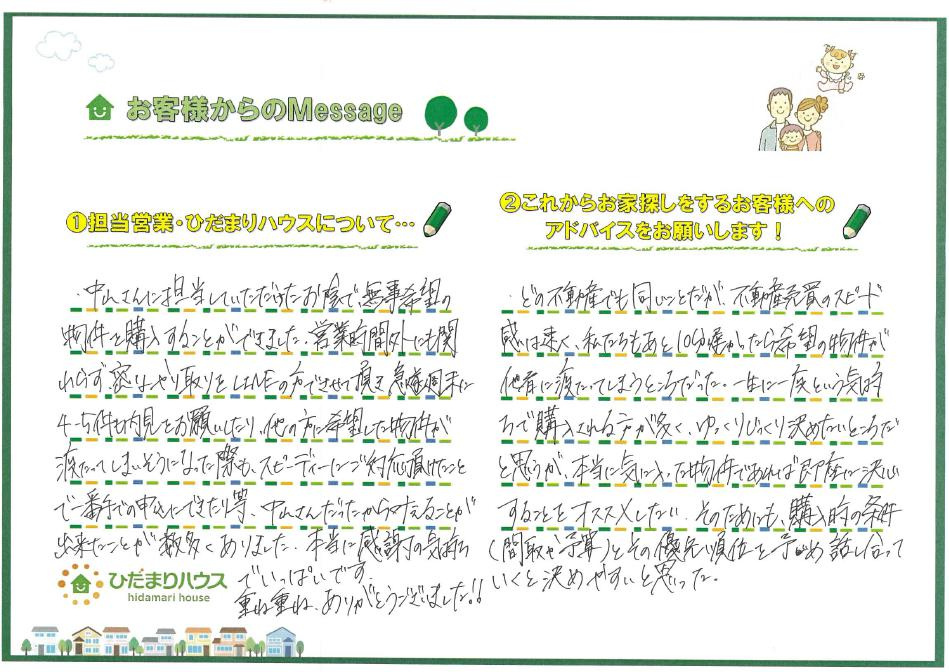 お客様からのMessage
①担当営業・ひだまりハウスについて…
・中山さんに担当していただけたお陰で、無事希望の
物件を購入することができました。営業時間外にも関
わらず、密なやり取りをLINEの方でさせて頂き、急遽週末に
4~5件も内見をお願いしたり、他の方に希望した物件が
渡たってしまいそうになった際も、スピーディーにご対応頂けたこと
で一番手での申込にできたり等、中山さんだったから叶えることが
出来たことが数多くありました。本当に感謝の気持ち
でいっぱいです。
重ね重ね、ありがとうございました!!
②これからお家探しをするお客様への
アドバイスをお願いします!
・どの不動産でも同じことだが、不動産売買のスピード
感は速く、私たちもあと10分遅かったら希望の物件が
他者に渡たってしまうところだった。一生に一度という気持
ちで購入される方が多く、ゆっくりじっくり決めたいところだ
と思うが、本当に気に入った物件であれば即座に決心
することをオススメしたい。そのためにも、購入時の条件
(間取や予算)とその優先順位を予め話し合って
いくと決めやすいと思った。
ひだまりハウス
hidamari house